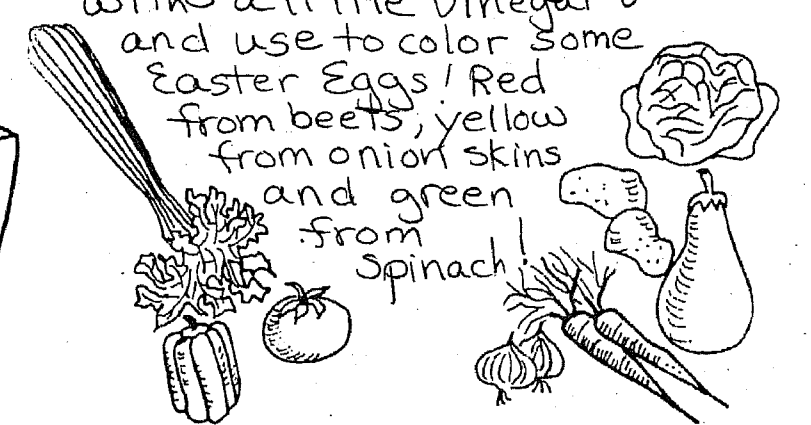 Vinegar
and use to color some
Easter Eggs! Red
from beets, yellow
from onion skins
and green
from
Spinach!